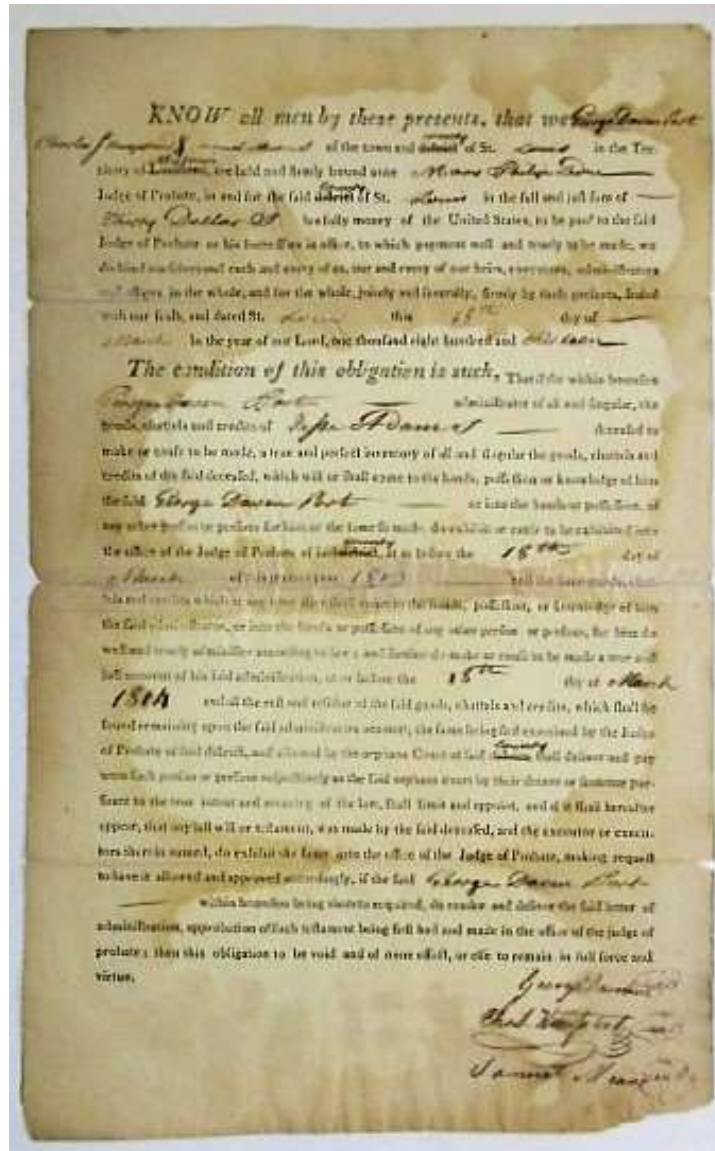 KNOW all men by these presents, that we George Daven Port
of the town and county district of St. Louis in the Ter-
ritory of are held and firmly bound unto
Judge of Probate, in and for the said County district of St. Louis in the full and just sum of
Dollars lawfully money of the United States, to be paid to the said
Judge of Probate or his successors in office, to which payment well and truely to be made, we
do bind ourselves and each and every of us, our and every of our heirs, executors, administrators
and assigns in the whole, and for the whole, jointly and severally, firmly by these presents, sealed
with our seals, and dated St. Louis this 18th day of
March in the year of our Lord, one thousand eight hundred and thirteen
The condition of this obligation is such, That if the within bounden
George Daven Port administrator of all and singular, the
goods, chattels and credits of Jesse Adams deceased do
make or cause to be made, a true and perfect inventory of all and singular the goods, chattels and
credits of the said deceased, which will or shall come to the hands, possession or knowledge of him
the said George Daven Port or into the hands or possession, of
any other person or persons for him or the same so made do exhibit or cause to be exhibited into
the office of the Judge of Probate of said county district, at or before the 18th day of
March
the said administrator, or into the hands or possession of any other person or persons, for him do
well and truely administer according to law; and further do make or cause to be made a true and
just account of his said administration, at or before the 18th day of March
1814 and all the rest and residue of the said goods, chattels and credits, which shall be
found remaining upon the said administrators account, the same being first examined by the Judge
of Probate of said district, and allowed by the orphans Court of said County shall deliver and pay
unto such person or persons respectively as the said orphans court by their decree or sentence pur-
suant to the true intent and meaning of the law, shall limit and appoint, and if it shall hereafter
appear, that any last will or testament, was made by the said deceased, and the executor or execu-
tors therein named, do exhibit the same unto the office of the Judge of Probate, making request
to have it allowed and approved accordingly, if the said George Daven Port
within bounden being thereto required, do render and deliver the said letter of
administration, approbation of such testament being first had and made in the office of the judge of
probate; then this obligation to be void and of none effect, or else to remain in full force and
virtue.
Samuel